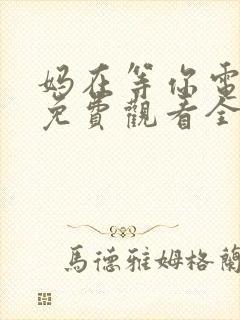 妈在等你電
免費觀看全
馬德雅姆格蘭